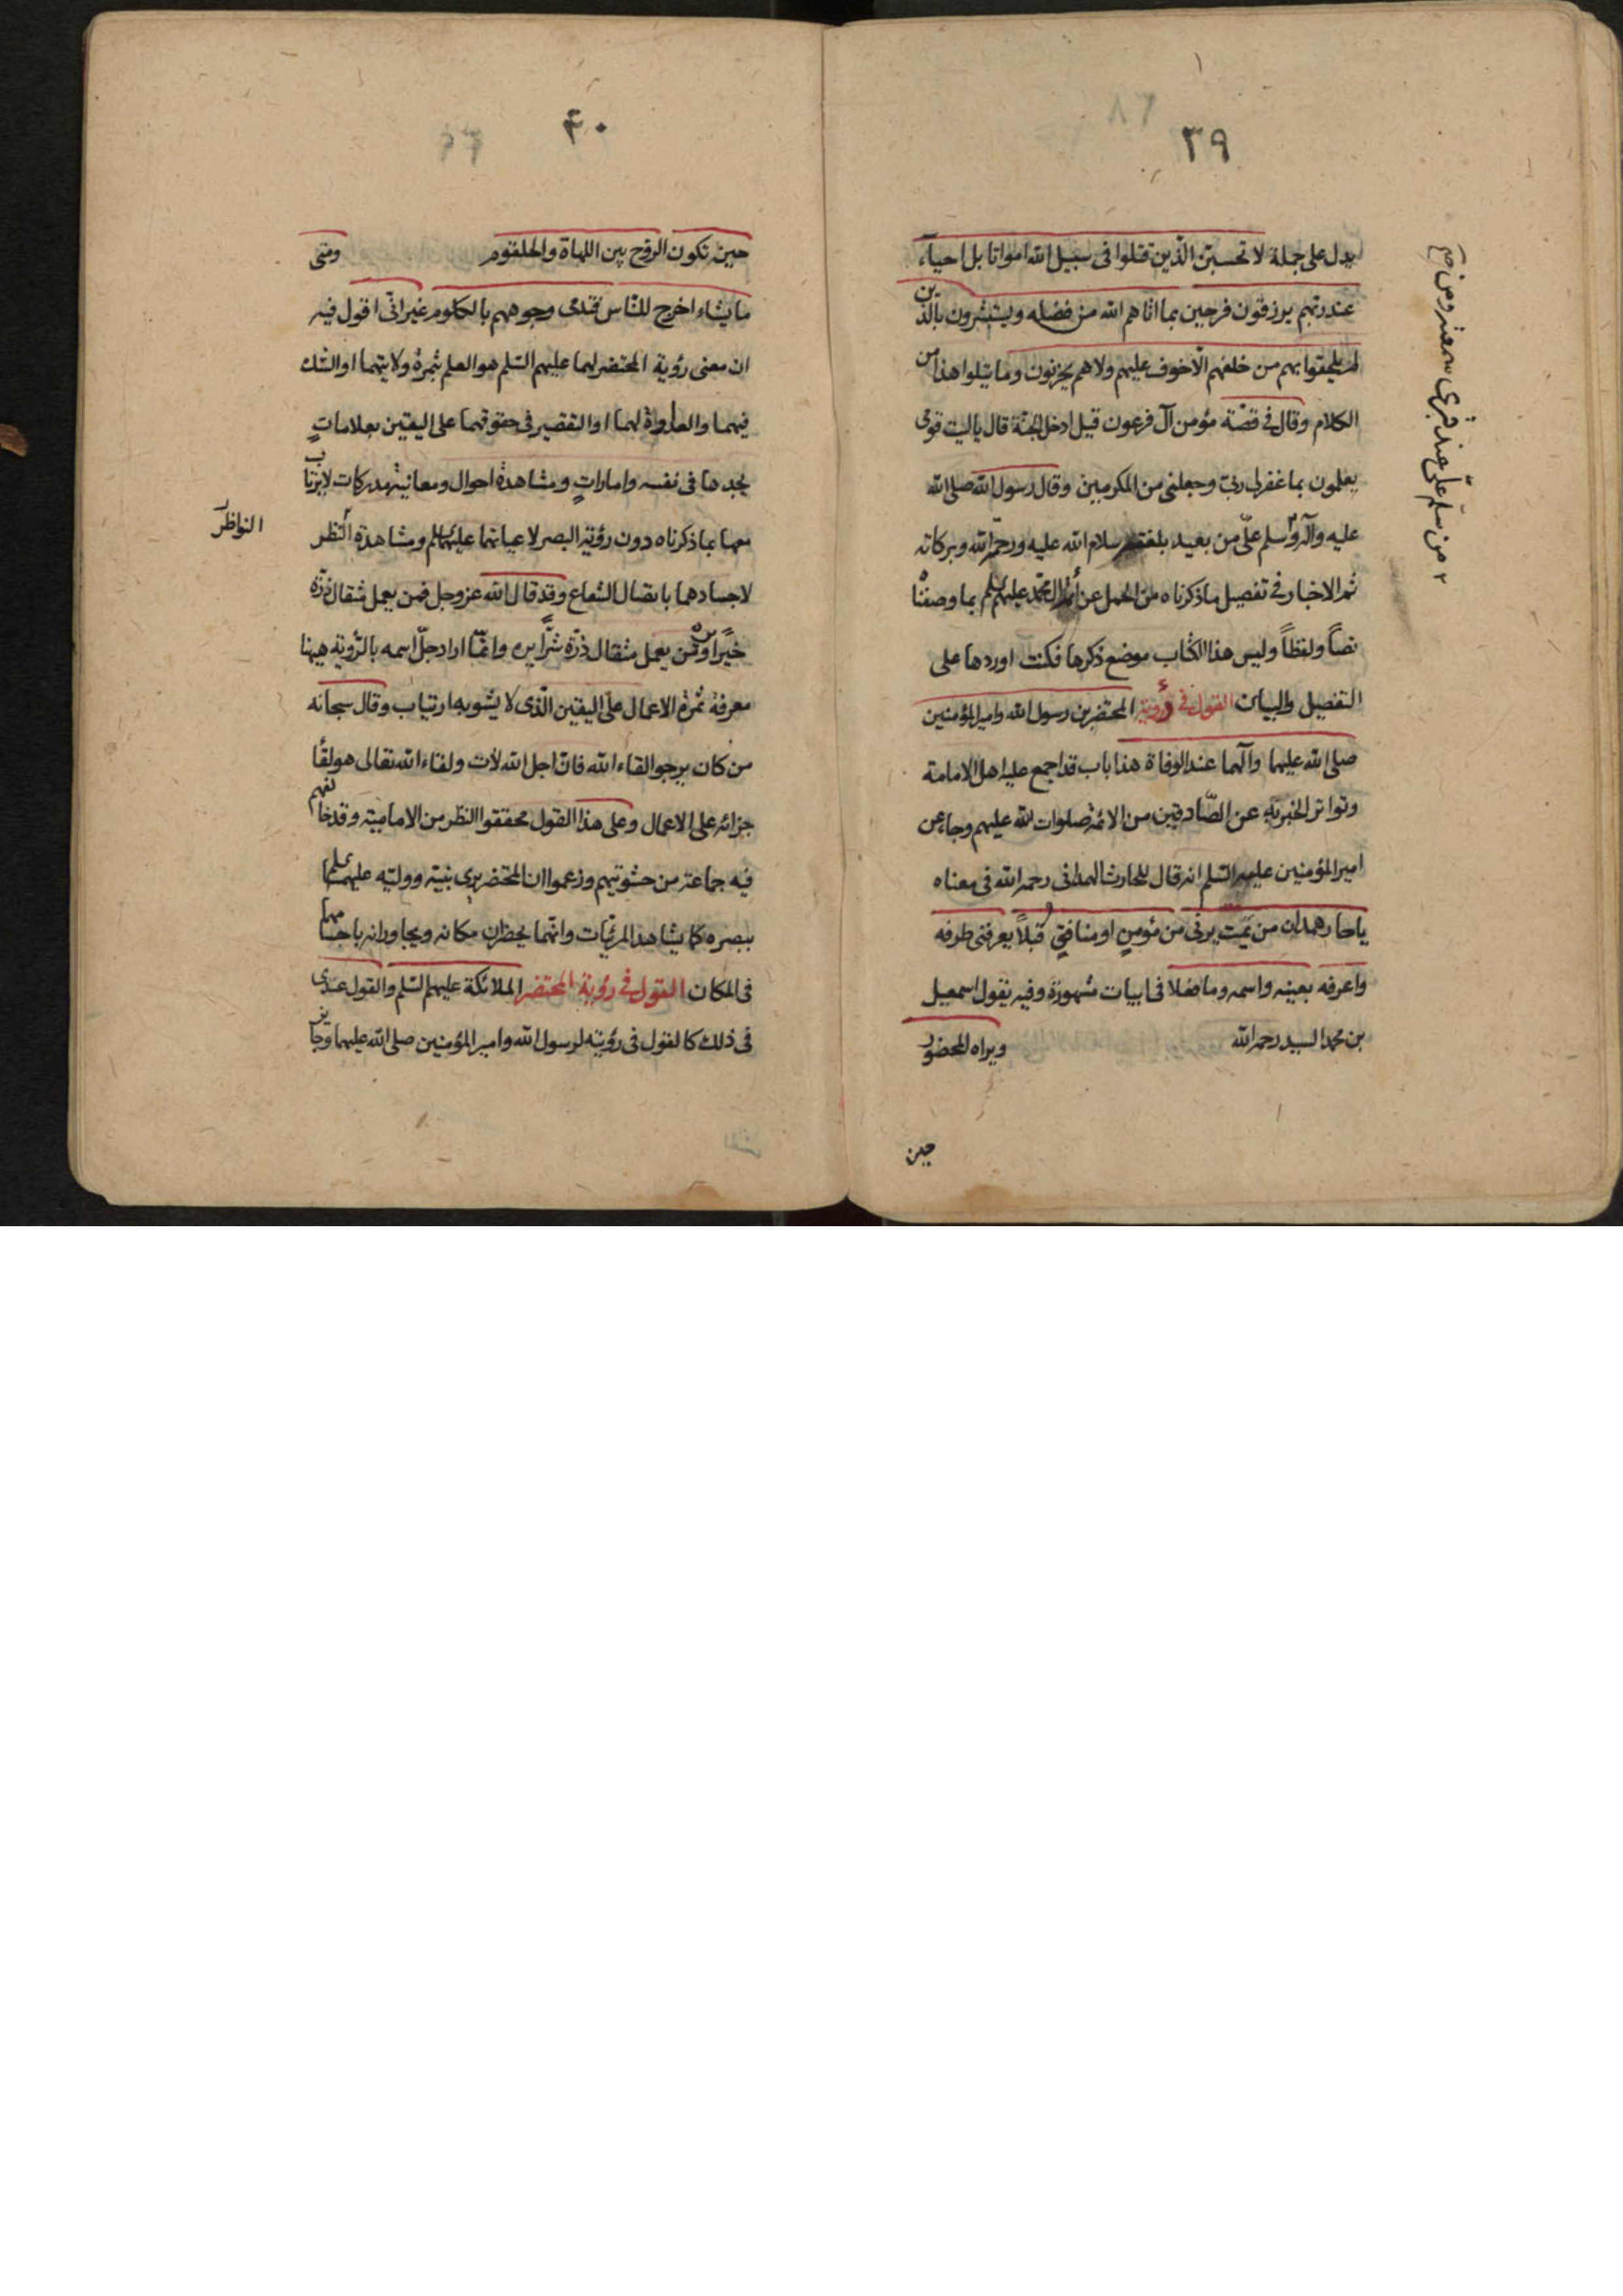 ٣٩
يدل على جملة لا تحسبنّ الّذين قتلوا فى سبيل الله امواتا بل احياء
عند ربّهم يرزقون فرحين بما اتاهم الله من فضله ويستبشرون بالّذين
لم يلحقوا بهم من خلفهم الّا خوف عليهم ولا هم يحزنون وما يتلوا هذا من
الكلام وقال فى قصّة مؤمن آل فرعون قيل ادخل الجنّة قال يا ليت قومى
يعلمون بما غفرلى ربّى وجعلنى من المكرمين وقال رسول الله صلى الله
عليه وآله وسلم علىّ من بعيد بلغته سلام الله عليه ورحمة الله وبركاته
٢ من سلّم علىّ عند قبرى سمعته ومن صح
ثم الاخبار فى تفصيل ما ذكرناه من الجمل عن أئمة آل محمّد عليهم السلم بما وصفناه
نصاً ولفظاً وليس هذا الكتاب موضع ذكرها فكنت اوردها على
التفصيل والبيان القول فى رؤية المحتضرين رسول الله وامير المؤمنين
صلى الله عليهما وآلهما عند الوفاة هذا باب قد اجمع عليه اهل الامامة
وتواتر الخبر به عن الصّادقين من الائمة صلوات الله عليهم وجاء عن
امير المؤمنين عليه السّلم انه قال للحارث الهمدانى رحمه الله فى معناه
يا حار همدان من يمت يرنى من مؤمنٍ او منافقٍ قُبلاً يعرفنى طرفه
واعرفه بعينه واسمه وما فعلا فى ابيات مشهورة وفيه يقول اسمعيل
بن محمد السيد رحمه الله ويراه المحضور
حين
۴۰
حين تكون الروح بين اللهاة والحلقوم ومتى
ما يشاء اخرج للنّاس فتدمى وجوههم بالكلوم غير انّى اقول فيه
ان معنى رؤية المحتضر لهما عليهم السّلم هو العلم بثمرة ولايتهما او الشك
فيهما والعداوة لهما او التقصير فى حقوقهما على اليقين بعلاماتٍ
يجدها فى نفسه واماراتٍ ومشاهدة احوال ومعاينة مدركات لا يرتاب
معها بما ذكرناه دون رؤية البصر لاعيانهما عليهما السلم ومشاهدة النّظر
النواظر
لاجسادهما باتصال الشعاع وقد قال الله عز وجل فمن يعمل مثقال ذرّة
خيرًا يره ومن يعمل مثقال ذرّة شرًّا يره وانّما اراد جلّ اسمه بالرّوية هيهنا
معرفة ثمرة الاعمال على اليقين الّذى لا يشوبه ارتياب وقال سبحانه
من كان يرجو لقاء الله فانّ اجل الله لآت ولقاء الله تعالى هو لقاء
جزائه على الاعمال وعلى هذا القول محققوا النظر من الامامية وقد خالفهم
فيه جماعة من حشويتهم وزعموا ان المحتضر يرى نبيّه ووليّه عليهما السلم
ببصره كما يشاهد المرئيات وانّهما يحضران مكانه ويجاورانه باجسامهما
فى المكان القول فى رؤية المحتضر الملائكة عليهم السّلم والقول عندى
فى ذلك كالقول فى رؤيته لرسول الله وامير المؤمنين صلى الله عليهما وجايز